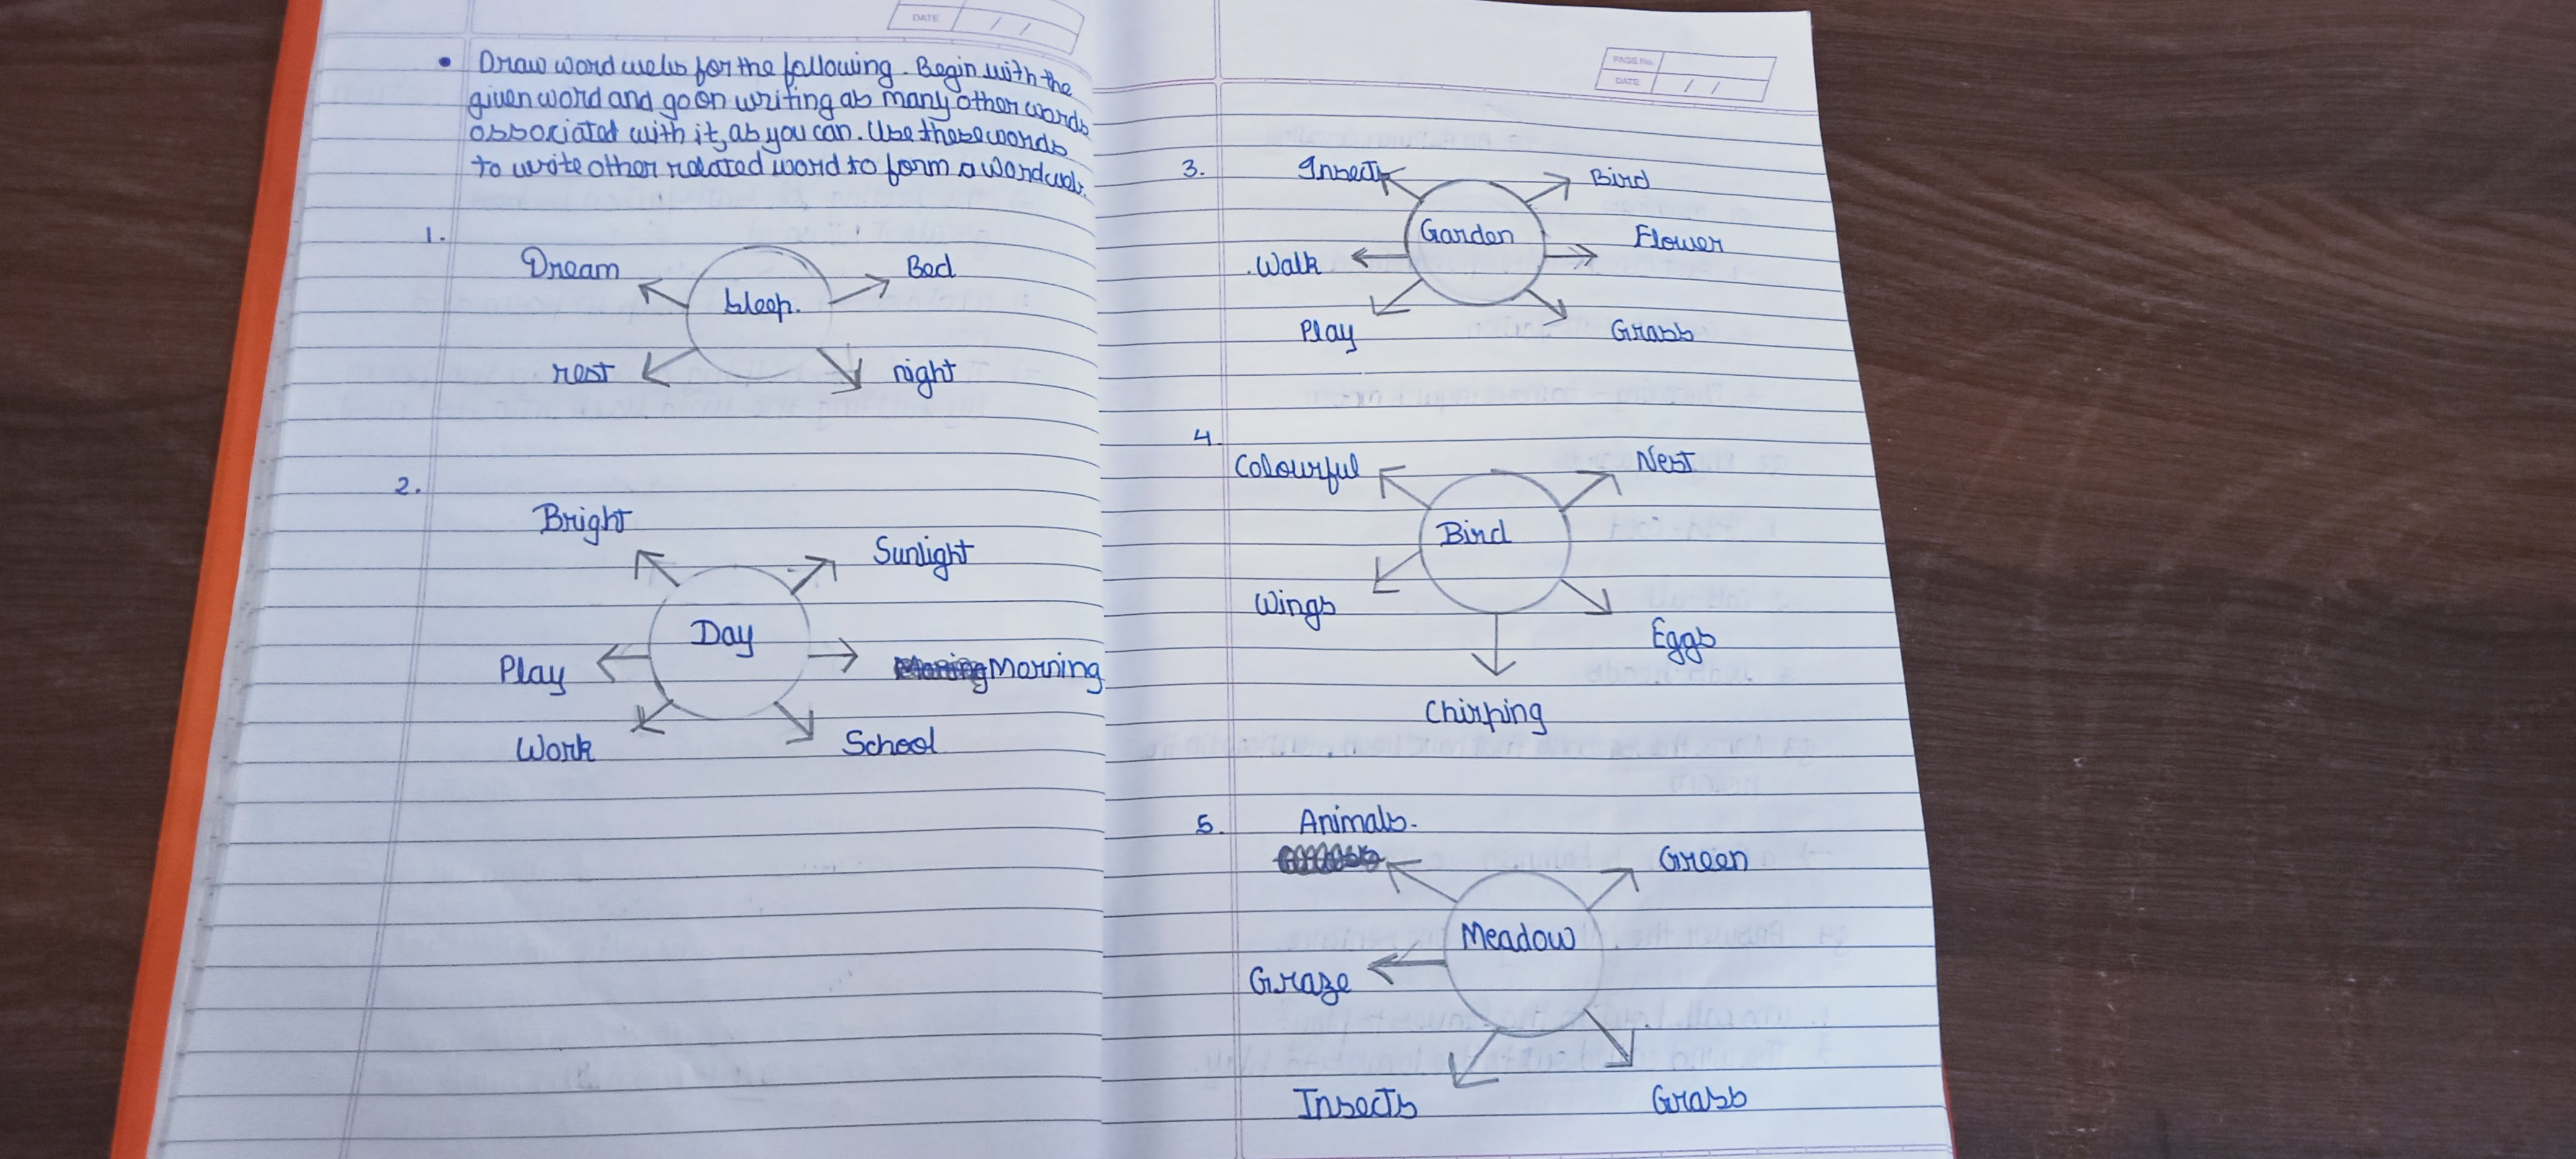 DATE / /
• Draw word webs for the following. Begin with the
given word and go on writing as many other words
associated with it, as you can. Use these words
to write other related word to form a word web.
1.
Dream Bed
sleep.
rest night
2.
Bright Sunlight
Day
Play Morning
Work School
PAGE No.
DATE / /
3. Insects Bird
Garden Flower
Walk
Play Grass
4.
Colourful Nest
Bird
Wings Eggs
Chirping
5. Animals.
Green
Meadow
Graze
Insects Grass